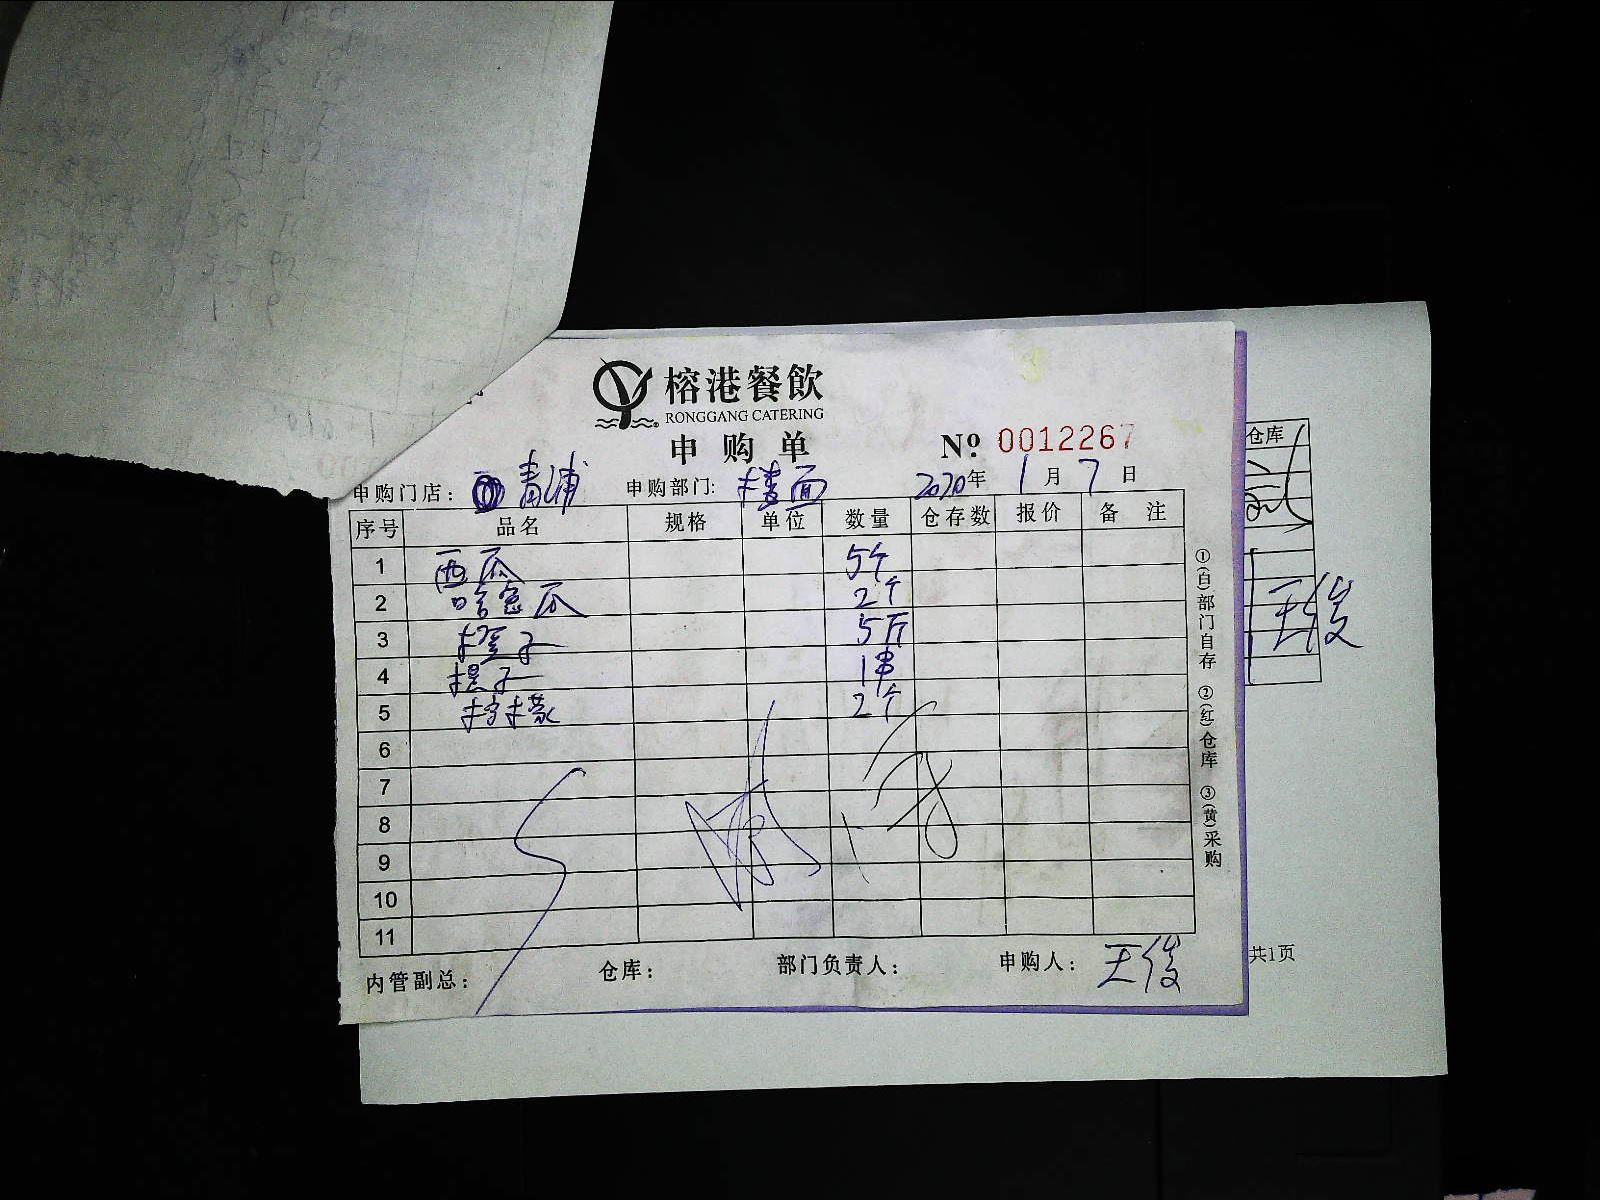 榕港餐飲
RONGGANG CATERING
申购单 № 0012267
申购门店：青浦 申购部门：楼面 2020年1月7日
序号 品名 规格 单位 数量 仓存数 报价 备 注
1 西瓜 5个
2 哈密瓜 2个
3 橙子 5斤
4 提子 1串
5 柠檬 2个
6
7
8
9
10
11
内管副总： 仓库： 部门负责人： 申购人：王俊
①(白)部门自存 ②(红)仓库 ③(黄)采购
仓库
王俊
共1页